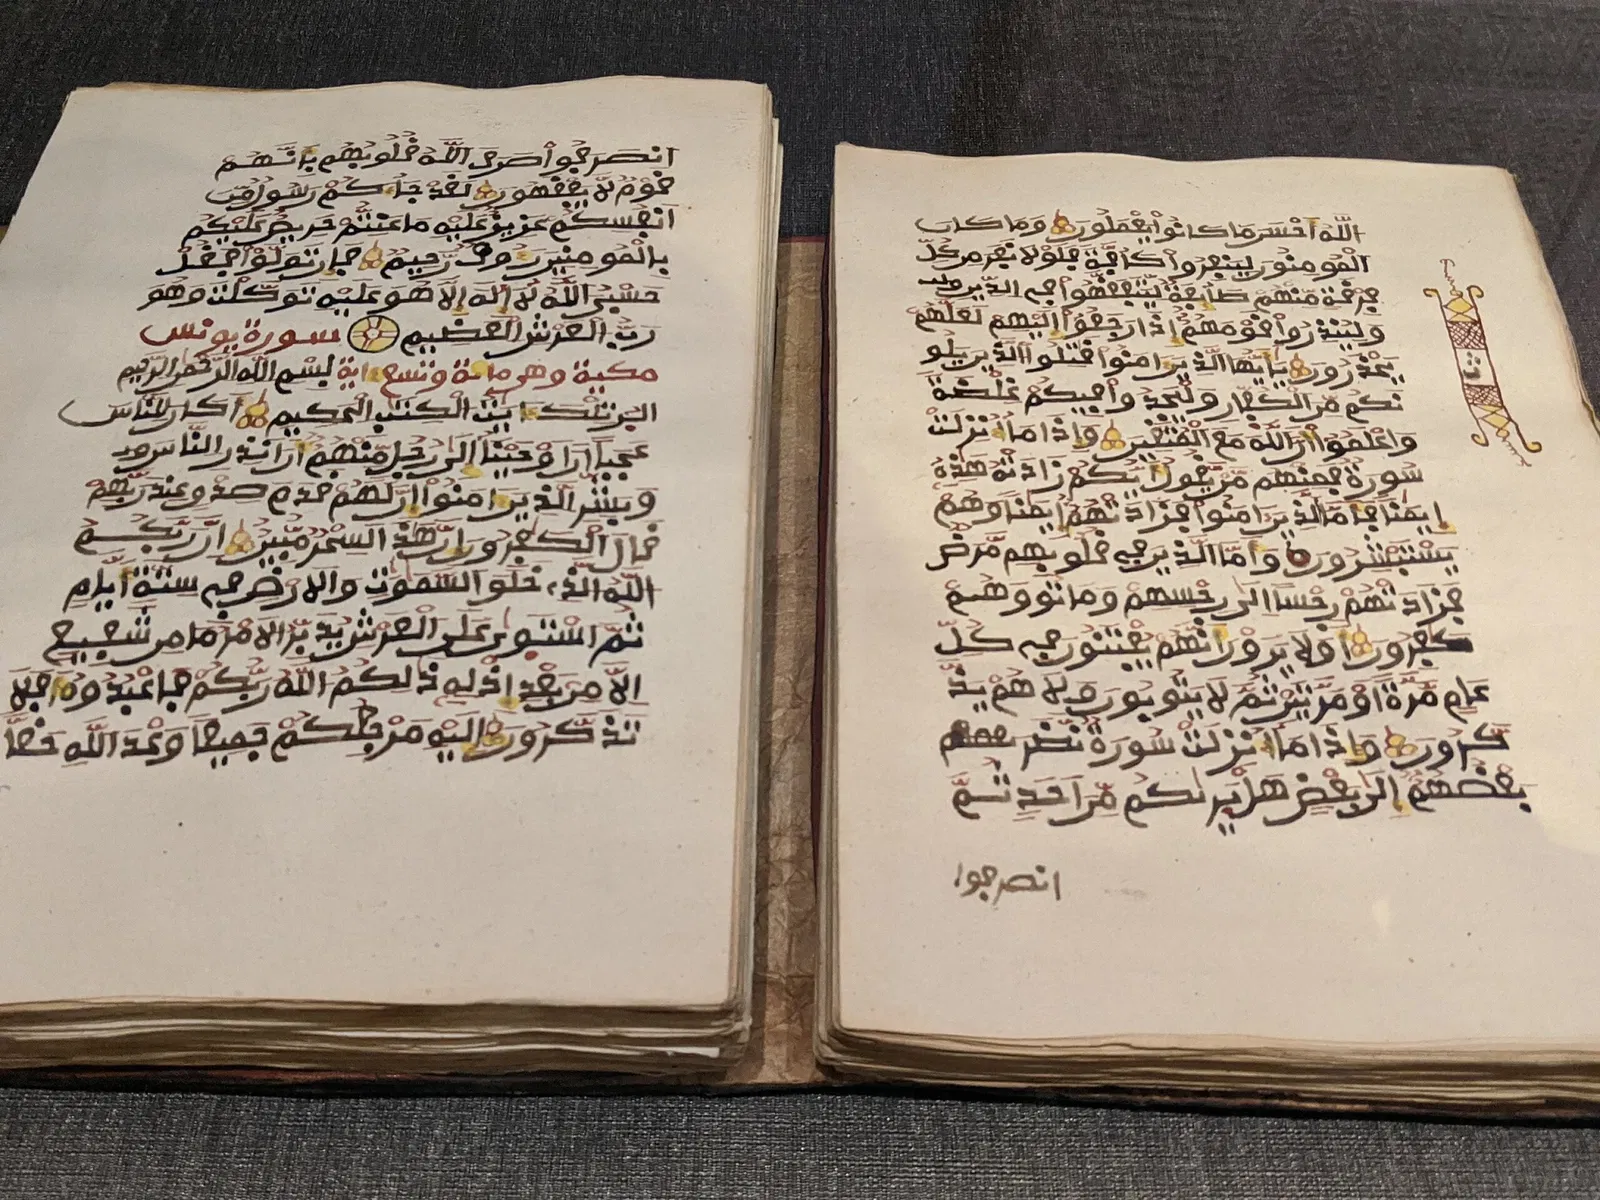 الله أحسن ما كانوا يعملون وما كان
المومنون لينفروا كافة فلولا نفر من كل
فرقة منهم طائفة ليتفقهوا في الدين
ولينذروا قومهم إذا رجعوا إليهم لعلهم
يحذرون يأيها الذين امنوا قتلوا الذين يلو
نكم من الكفار وليجدوا فيكم غلظة
واعلموا أن الله مع المتقين وإذا ما أنزلت
سورة فمنهم من يقول أيكم زادته هذه
إيمنا فأما الذين امنوا فزادتهم إيمنا وهم
يستبشرون وأما الذين في قلوبهم مرض
فزادتهم رجسا إلى رجسهم وماتوا وهم
كفرون أولا يرون أنهم يفتنون في كل
عام مرة أو مرتين ثم لا يتوبون ولا هم يذ
كرون وإذا ما أنزلت سورة نظر
بعضهم إلى بعض هل يريكم من أحد ثم
انصرفوا
انصرفوا صرف الله قلوبهم بأنهم
قوم لا يفقهون لقد جاءكم رسول من
أنفسكم عزيز عليه ما عنتم حريص عليكم
بالمومنين رءوف رحيم فإن تولوا فقل
حسبي الله لا إله إلا هو عليه توكلت وهو
رب العرش العظيم سورة يونس
مكية وهي مائة وتسع آية بسم الله الرحمن الرحيم
الر تلك ءايت الكتب الحكيم أكان للناس
عجبا أن أوحينا إلى رجل منهم أن أنذر الناس و
وبشر الذين امنوا أن لهم قدم صدق عند ربهم
قال الكفرون إن هذا لسحر مبين إن ربكم
الله الذي خلق السموت والارض في ستة أيام
ثم استوى على العرش يدبر الامر ما من شفيع
إلا من بعد إذنه ذلكم الله ربكم فاعبدوه أفلا
تذكرون إليه مرجعكم جميعا وعد الله حقا